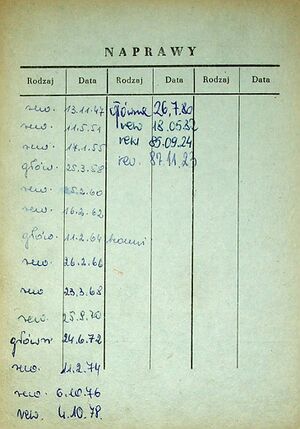 NAPRAWY
Rodzaj Data Rodzaj Data Rodzaj Data
rew. 13.11.47 główna 26.7.80
rew. 11.5.51 rew 18.05.82
rew. 17.1.55 rew 85.09.24
głów. 25.3.58 rew. 87.11.23
rew. 25.2.60
rew. 16.2.62
głów. 11.2.64
rew. 26.2.66
rew 23.3.68
rew. 25.8.70
główn 24.6.72
rew. 11.2.74
rew. 6.10.76
rew. 4.10.78.